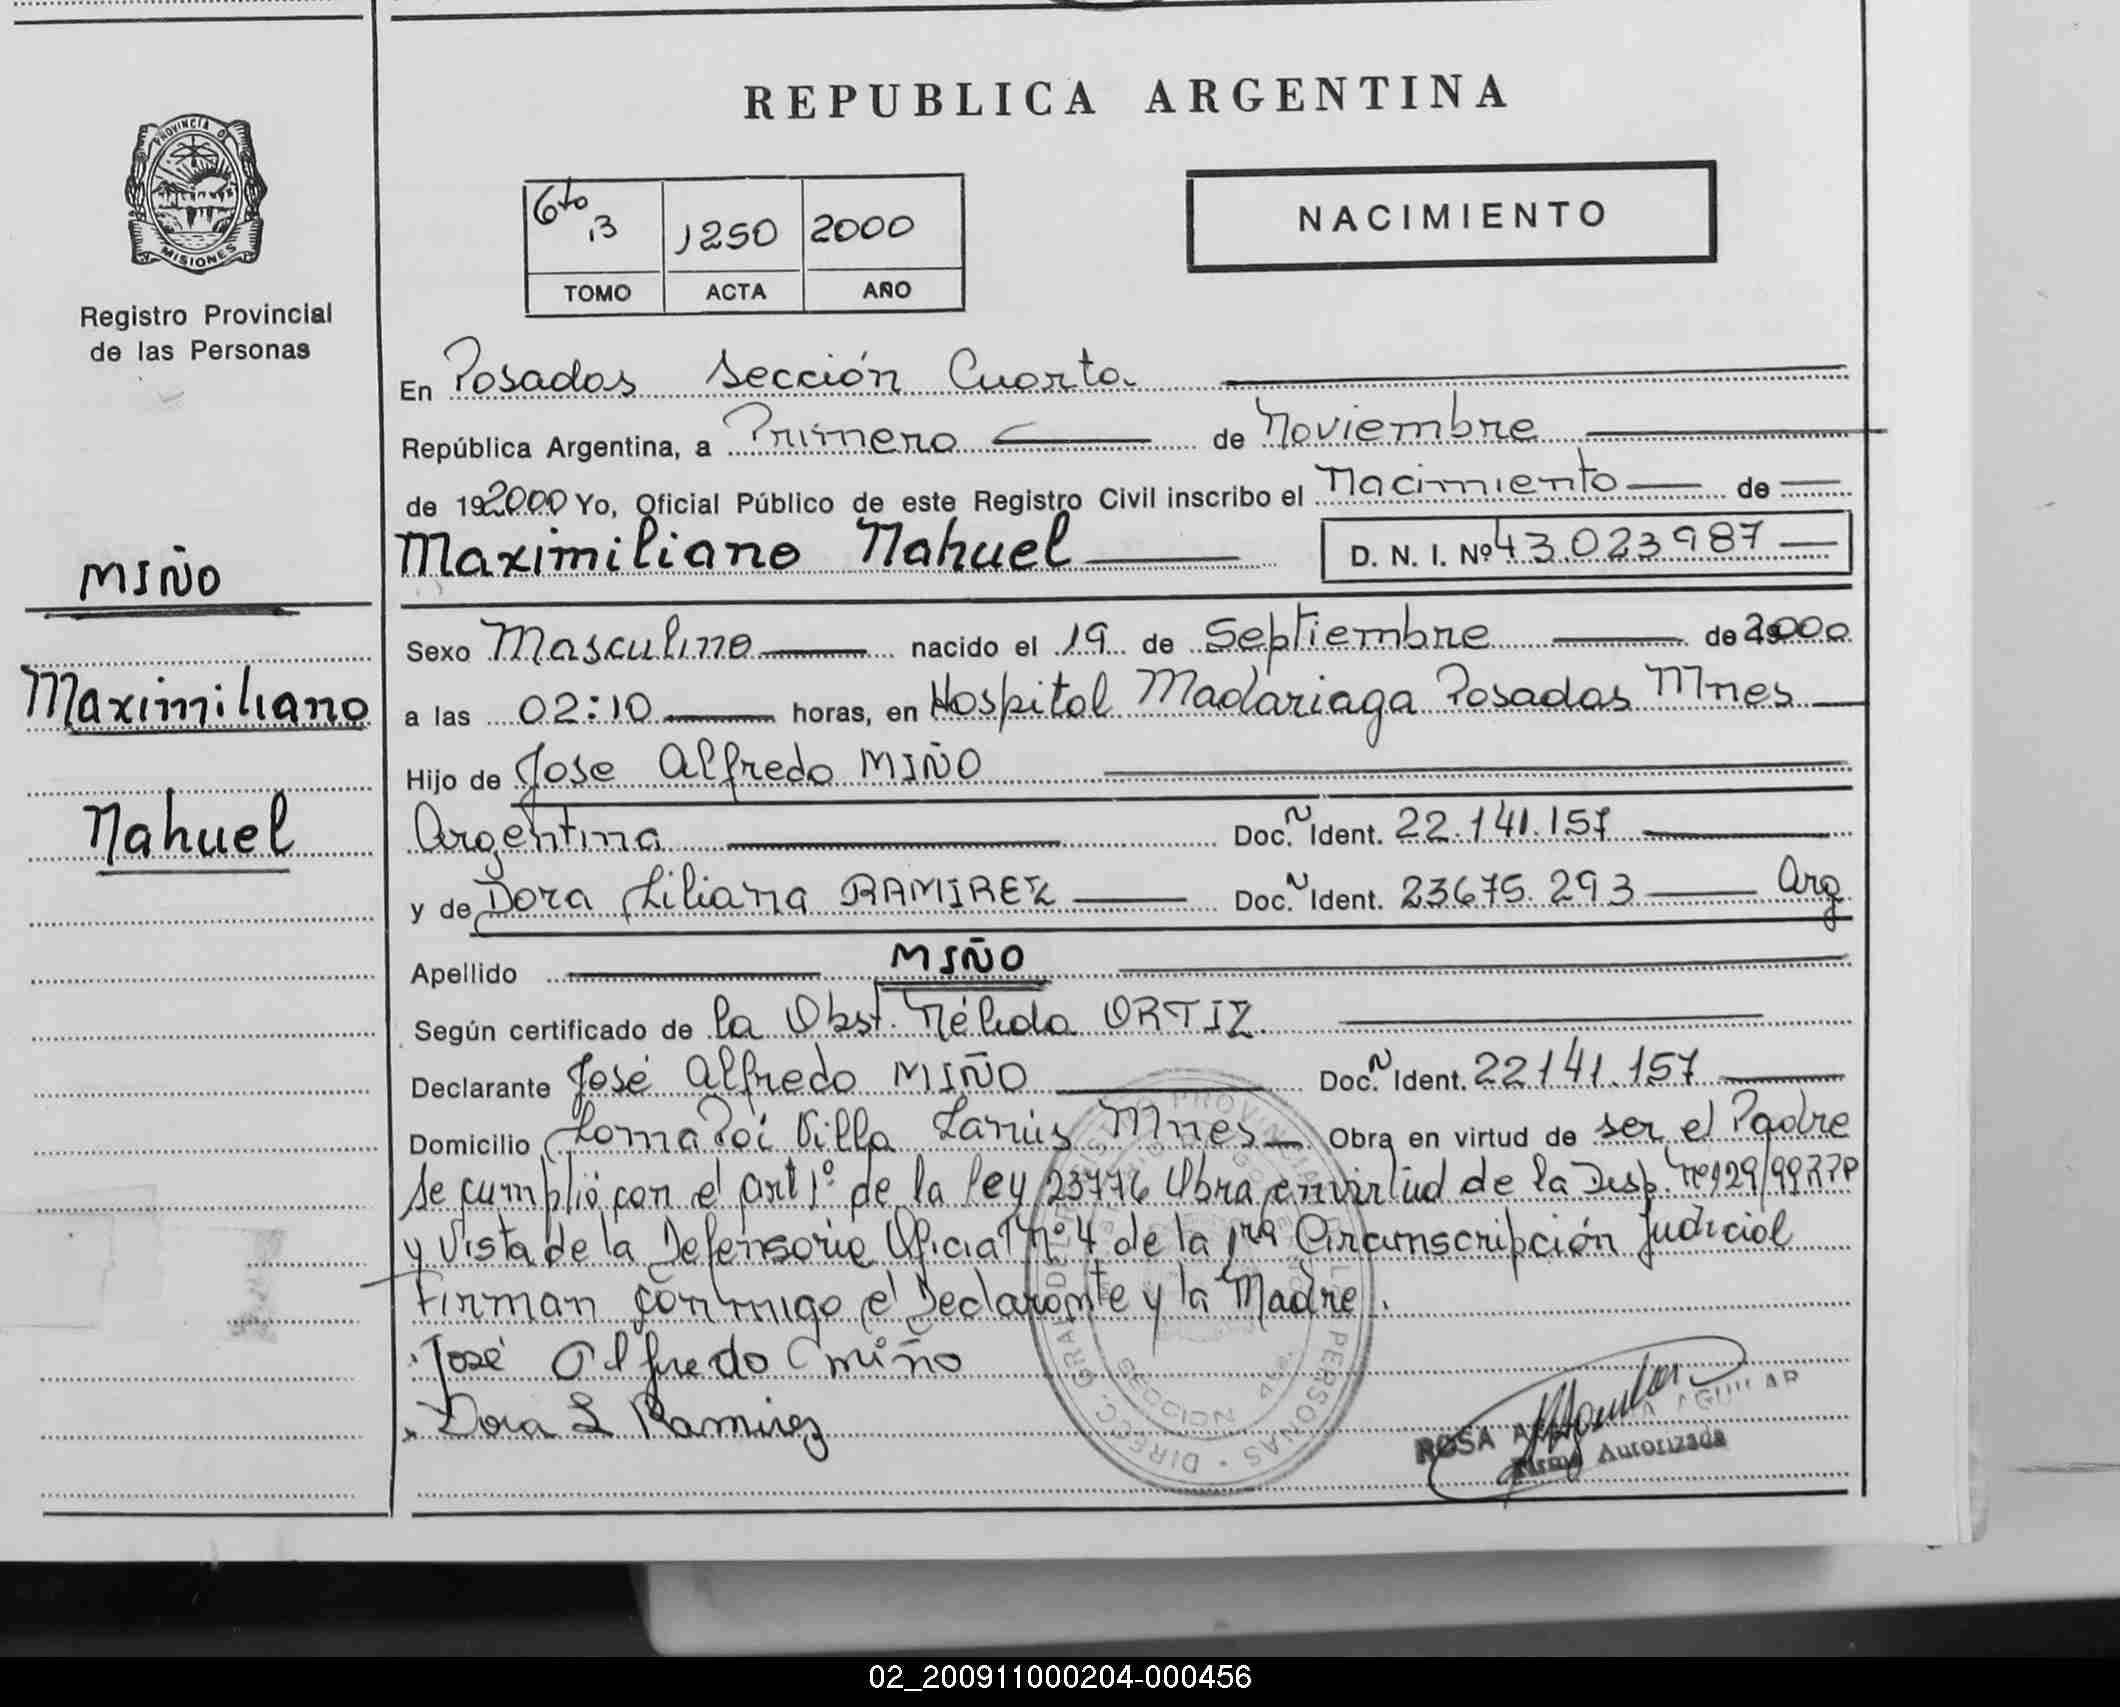 PROVINCIA DE
MISIONES
Registro Provincial
de las Personas
MIÑO
Maximiliano
Nahuel
REPUBLICA ARGENTINA
6to 13 1250 2000
TOMO ACTA AÑO
NACIMIENTO
En Posadas Sección Cuarta
República Argentina, a Primero de Noviembre
de 192000 Yo, Oficial Público de este Registro Civil inscribo el Nacimiento de
Maximiliano Nahuel D. N. I. Nº 43.023987
Sexo Masculino nacido el 19 de Septiembre de 2000
a las 02:10 horas, en Hospital Madariaga Posadas Mnes
Hijo de Jose Alfredo MIÑO
Argentina Doc. N Ident. 22.141.157
y de Dora Liliana RAMIREZ Doc. N Ident. 23675.293 Arg
Apellido MIÑO
Según certificado de la Obst. Nélida ORTIZ
Declarante José Alfredo MIÑO Doc. N Ident. 22141.157
Domicilio Loma Poi Villa Lanús Mnes Obra en virtud de ser el Padre
Se cumplió con el art 1º de la ley 23776 Obra en virtud de la Disp. Nº 929/99 RPP
y Vista de la Defensoria Oficial Nº 4 de la 1ra Circunscripción Judicial
Firman conmigo el Declarante y la Madre.
José Alfredo miño
Dora L Ramirez
ROSA AGUILAR
Firma Autorizada
02_200911000204-000456